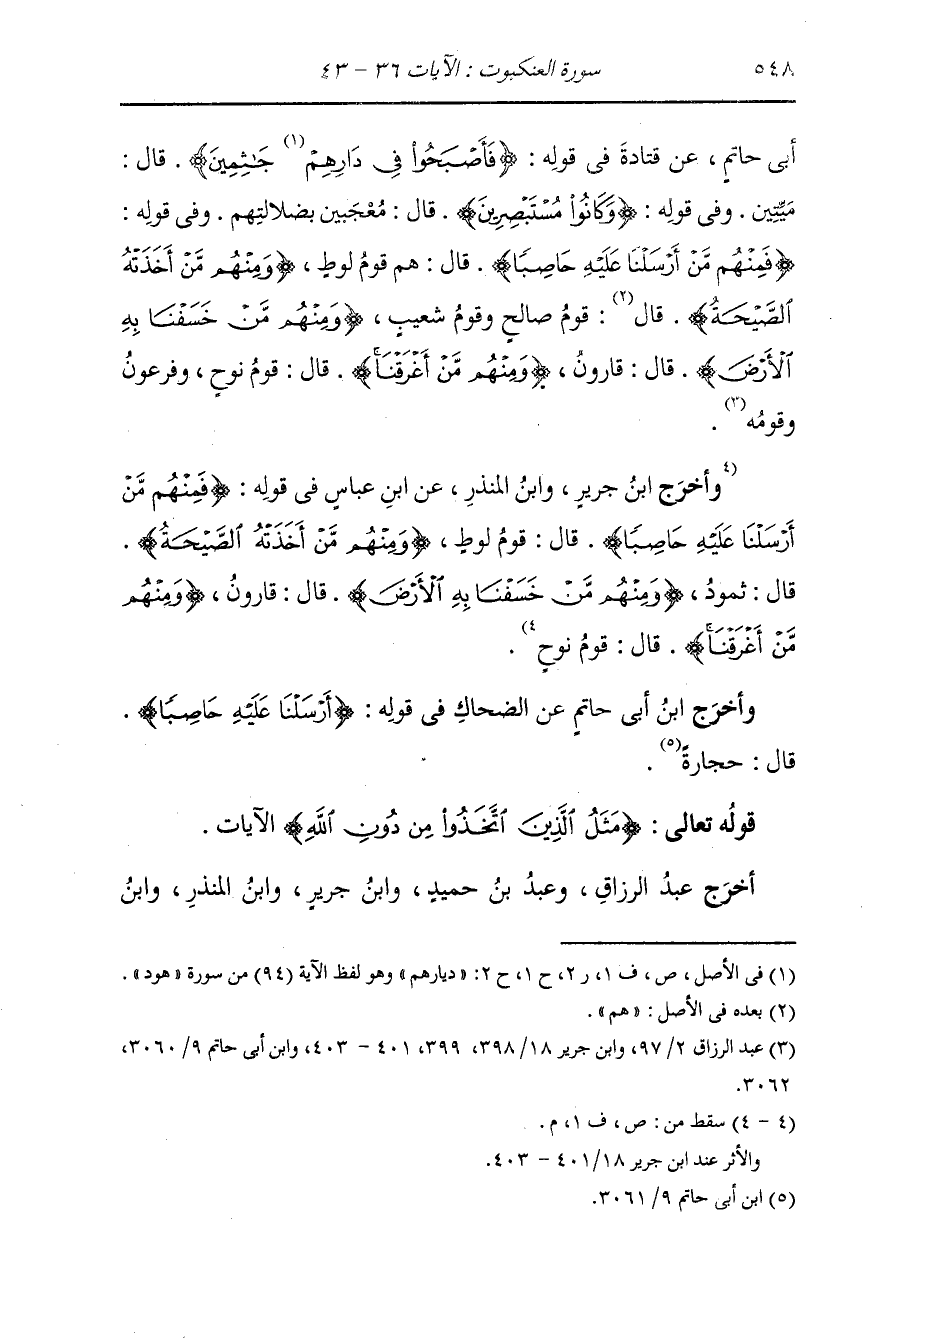 ٥٤٨ سورة العنكبوت : الآيات ٣٦ - ٤٣
أبى حاتمٍ ، عن قتادةَ فى قولِه : ﴿فَأَصْبَحُوا۟ فِى دَارِهِمْ(١) جَـٰثِمِينَ﴾ . قال :
مَيِّتِين . وفى قولِه : ﴿وَكَانُوا۟ مُسْتَبْصِرِينَ﴾ . قال : مُعْجَبين بضلالتِهم . وفى قولِه :
﴿فَمِنْهُم مَّنْ أَرْسَلْنَا عَلَيْهِ حَاصِبًا﴾ . قال : هم قومُ لوطٍ ، ﴿وَمِنْهُم مَّنْ أَخَذَتْهُ
ٱلصَّيْحَةُ﴾ . قال(٢) : قومُ صالحٍ وقومُ شعيبٍ ، ﴿وَمِنْهُم مَّنْ خَسَفْنَا بِهِ
ٱلْأَرْضَ﴾ . قال : قارونُ ، ﴿وَمِنْهُم مَّنْ أَغْرَقْنَا﴾ . قال : قومُ نوحٍ ، وفرعونُ
وقومُه(٣) .
(٤وأخرَج ابنُ جريرٍ ، وابنُ المنذرِ ، عن ابنِ عباسٍ فى قولِه : ﴿فَمِنْهُم مَّنْ
أَرْسَلْنَا عَلَيْهِ حَاصِبًا﴾ . قال : قومُ لوطٍ ، ﴿وَمِنْهُم مَّنْ أَخَذَتْهُ ٱلصَّيْحَةُ﴾ .
قال : ثمودُ ، ﴿وَمِنْهُم مَّنْ خَسَفْنَا بِهِ ٱلْأَرْضَ﴾ . قال : قارونُ ، ﴿وَمِنْهُم
مَّنْ أَغْرَقْنَا﴾ . قال : قومُ نوحٍ٤) .
وأخرَج ابنُ أبى حاتمٍ عن الضحاكِ فى قولِه : ﴿أَرْسَلْنَا عَلَيْهِ حَاصِبًا﴾ .
قال : حجارةً(٥) .
قولُه تعالى : ﴿مَثَلُ ٱلَّذِينَ ٱتَّخَذُوا۟ مِن دُونِ ٱللَّهِ﴾ الآيات .
أخرَج عبدُ الرزاقِ ، وعبدُ بنُ حميدٍ ، وابنُ جريرٍ ، وابنُ المنذرِ ، وابنُ
(١) فى الأصل ، ص ، ف ١، ر ٢، ح ١، ح ٢: «ديارهم» وهو لفظ الآية (٩٤) من سورة «هود» .
(٢) بعده فى الأصل : «هم» .
(٣) عبد الرزاق ٢/ ٩٧، وابن جرير ١٨/ ٣٩٨، ٣٩٩، ٤٠١ - ٤٠٣، وابن أبى حاتم ٩/ ٣٠٦٠،
٣٠٦٢.
(٤ - ٤) سقط من : ص ، ف ١، م .
والأثر عند ابن جرير ١٨/ ٤٠١ - ٤٠٣.
(٥) ابن أبى حاتم ٩/ ٣٠٦١.